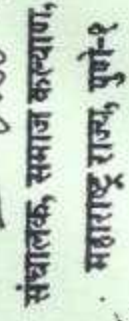 संचालक, समाज कल्याण,
महाराष्ट्र राज्य, पुणे-१